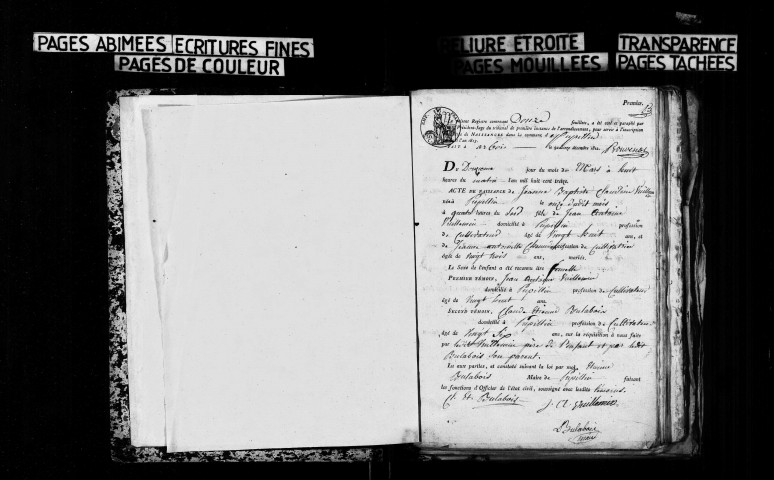 PAGES ABIMEES ECRITURES FINES
PAGES DE COULEUR
RELIURE ETROITE
PAGES MOUILLEES
TRANSPARENCE
PAGES TACHEES
Premier.
Registre contenant Douze feuillets, a été coté et paraphé par
Président-Juge du tribunal de première instance de l'arrondissement, pour servir à l'inscription
de NAISSANCES dans la commune de Pupillin
l'an 1813.
FAIT à arbois le décembre 1812. Bouvenot
DU Douzieme jour du mois de Mars à huit
heures du matin l'an mil huit cent treize.
ACTE DE NAISSANCE de Jeanne Baptiste Claudine Vuillemin
née à Pupillin le onze dudit mois
à quatre heures du soir fille de Jean Antoine
Vuillemin domicilié à Pupillin profession
de Cultivateur âgé de vingt huit ans, et
de profession de Cultivatrice
âgée de vingt trois ans, mariés.
Le Sexe de l'enfant a été reconnu être femelle
PREMIER TÉMOIN, Jean Vuillemin
domicilié à Pupillin profession de Cultivateur
âgé de vingt huit ans.
SECOND TÉMOIN, Claude Etienne Boulabois
domicilié à Pupillin profession de Cultivateur
âgé de vingt six ans, sur la réquisition à nous faite
par ledit Vuillemin père de l'enfant et par ledit
Bulabois son parent.
Lu aux parties, et constaté suivant la loi par moi Etienne
Bulabois Maire de Pupillin faisant
les fonctions d'Officier de l'état civil, soussigné avec lesdits témoins.
Cl. Et. Bulabois J. A. Vuillemin
Bulabois
maire